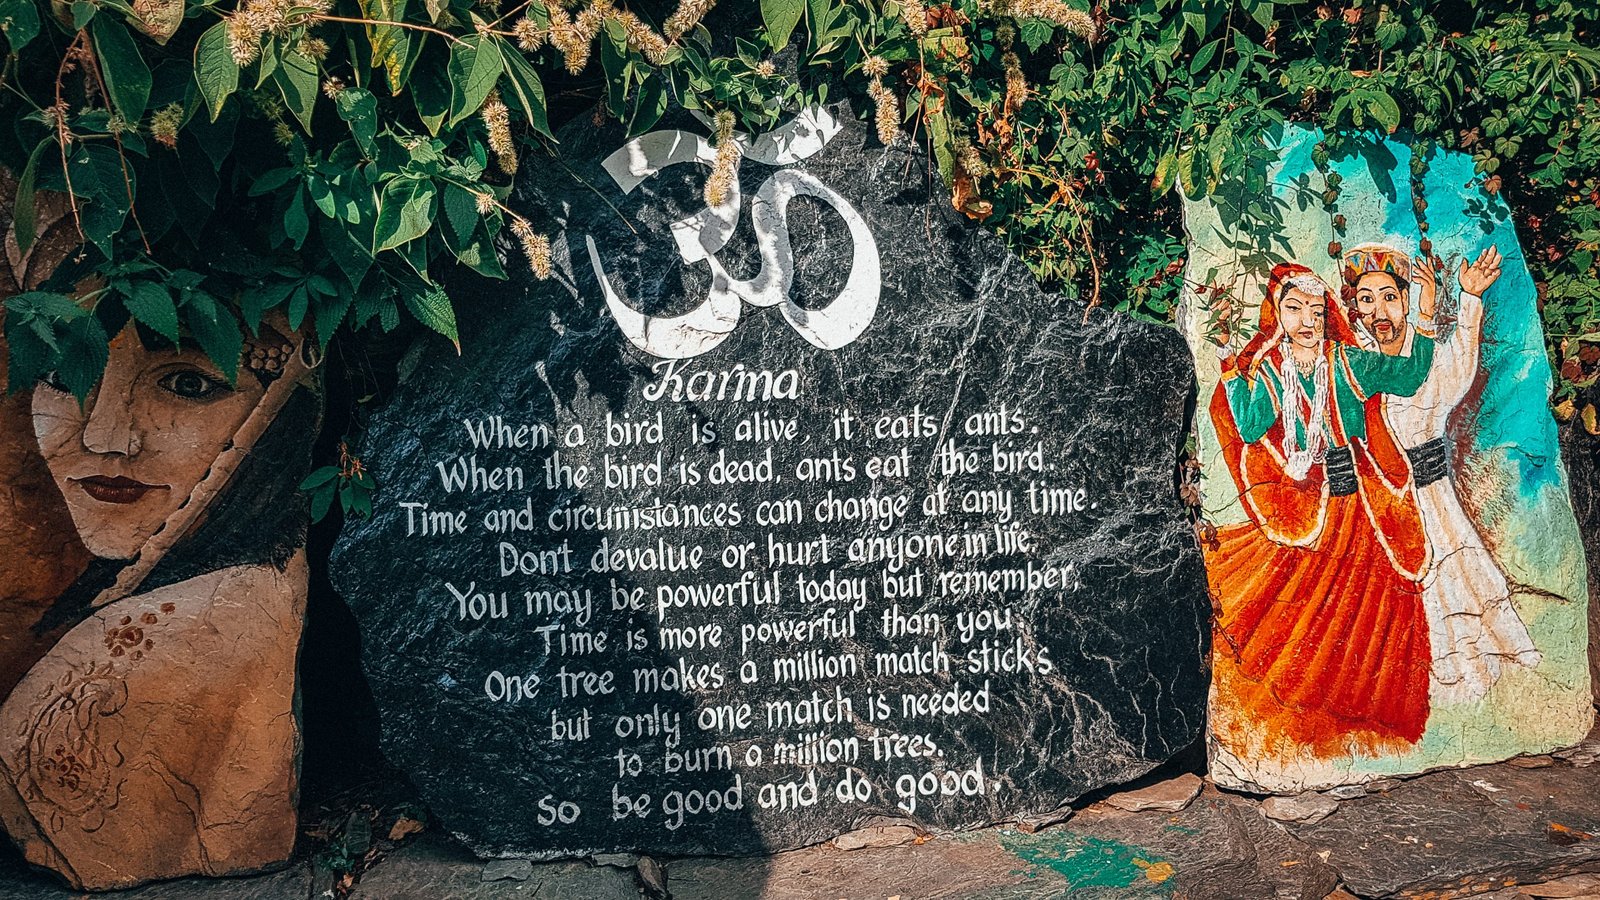 ॐ
Karma
When a bird is alive, it eats ants.
When the bird is dead, ants eat the bird.
Time and circumstances can change at any time.
Don't devalue or hurt anyone in life.
You may be powerful today but remember,
Time is more powerful than you.
One tree makes a million match sticks
but only one match is needed
to burn a million trees.
so be good and do good.